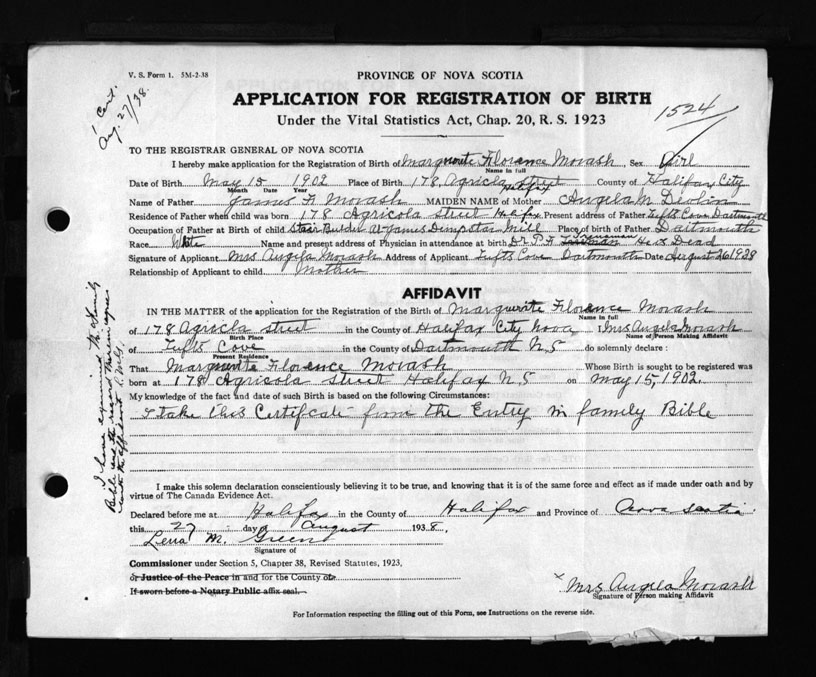 V. S. Form 1. 5M-2-38
PROVINCE OF NOVA SCOTIA
1 Cert.
Aug. 27/38.
APPLICATION FOR REGISTRATION OF BIRTH
1524
Under the Vital Statistics Act, Chap. 20, R. S. 1923
TO THE REGISTRAR GENERAL OF NOVA SCOTIA
I hereby make application for the Registration of Birth of Marguerite Florence Movash, Sex Girl
Name in full
Date of Birth May 15 1902 Place of Birth 178 Agricla Street Halifax County of Halifax City
Month Date Year
Name of Father James F. Movash MAIDEN NAME of Mother Angela M Devlin
Residence of Father when child was born 178 Agricola Street Halifax Present address of Father Tufts Cove Dartmouth
Occupation of Father at Birth of child Stair Builder at James Dempstar Mill Place of birth of Father Dartmouth
Race White Name and present address of Physician in attendance at birth Dr P.F. Hx Dead
Signature of Applicant Mrs Angela Movash Address of Applicant Tufts Cove Dartmouth Date August 26 1938
Relationship of Applicant to child Mother
AFFIDAVIT
IN THE MATTER of the application for the Registration of the Birth of Marguerite Florence Movash
Name in full
of 178 Agricla street in the County of Halifax City Nova I Mrs Angela Movash
Birth Place Name of Person Making Affidavit
of Tufts Cove in the County of Dartmouth N.S do solemnly declare:
Present Residence
That Marguerite Florence Movash Whose Birth is sought to be registered was
born at 178 Agricola Street Halifax N.S on May 15, 1902.
My knowledge of the fact and date of such Birth is based on the following Circumstances:
I take this Certificate from the Entry in family Bible
I have examined the family
Bible and the record therein agrees
with the affidavit
I make this solemn declaration conscientiously believing it to be true, and knowing that it is of the same force and effect as if made under oath and by
virtue of The Canada Evidence Act.
Declared before me at Halifax in the County of Halifax and Province of Nova Scotia
this 27 day of August 1938.
Lena M. Green
Signature of
Commissioner under Section 5, Chapter 38, Revised Statutes, 1923,
or Justice of the Peace in and for the County of
If sworn before a Notary Public affix seal.
x Mrs Angela Movash
Signature of Person making Affidavit
For Information respecting the filling out of this Form, see Instructions on the reverse side.